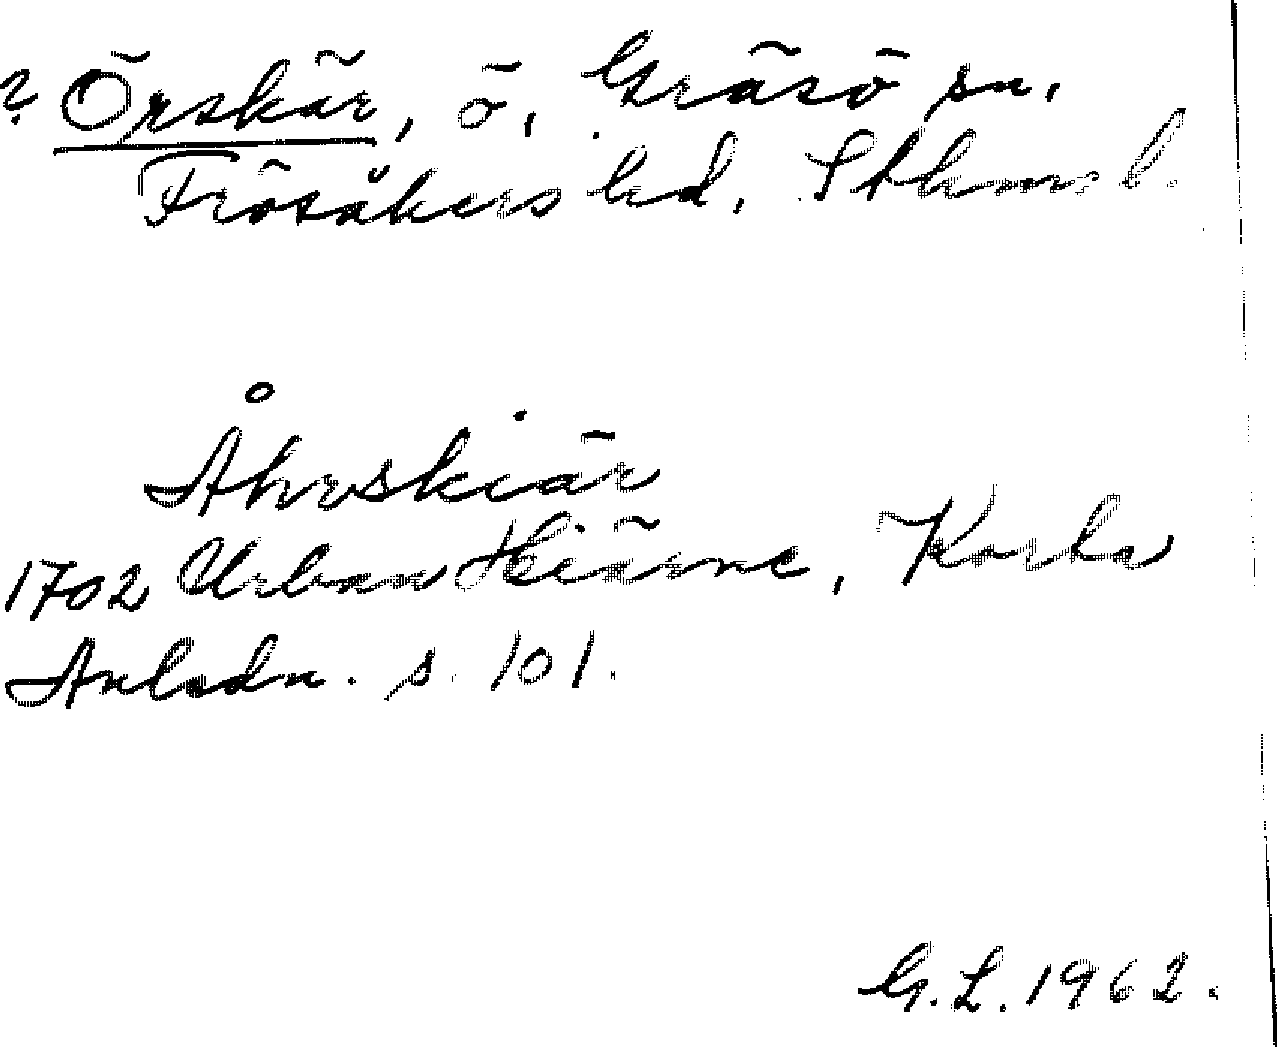 ? Örskär, ö, Gräsö sn,
Frösåkers hd, Sthms l.
Åhrskiär
1702 Urban Hiärne, Korta
Anledn. s. 101.
G. L. 1962.